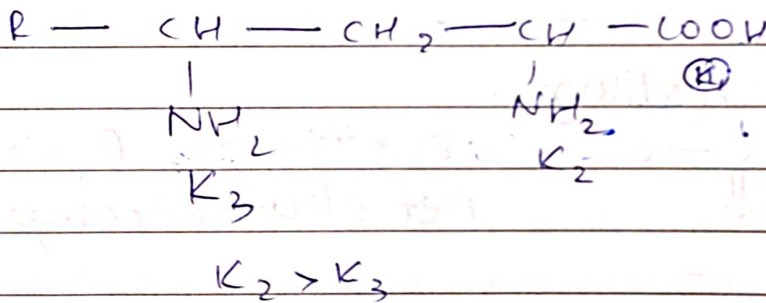 R — CH — CH₂ — CH — COOH
NH₂ NH₂ K₁
K₃ K₂
K₂ > K₃